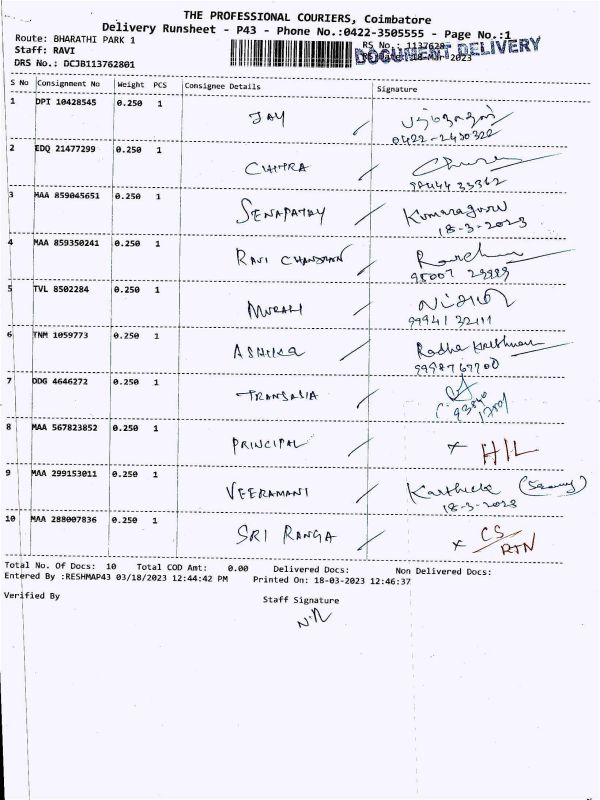 THE PROFESSIONAL COURIERS, Coimbatore
Delivery Runsheet - P43 - Phone No.:0422-3505555 - Page No.:1
Route: BHARATHI PARK 1
RS No.: 1137628
Staff: RAVI
DOCUMENT DELIVERY
18-Mar-2023
DRS No.: DCJB113762801
S No Consignment No Weight PCS Consignee Details Signature
1 DPI 10428545 0.250 1 JAY
0422-2430322
2 EDQ 21477299 0.250 1 CHITRA
98444 33362
3 MAA 859045651 0.250 1 SENAPATHY Kumaraguru
18-3-2023
4 MAA 859350241 0.250 1 RAVI CHANDRAN
95007 29989
5 TVL 8502284 0.250 1 MURALI
99941 32111
6 TNM 1059773 0.250 1 ASHIKA Radha Krishnan
7 ODG 4646272 0.250 1 TRANSASIA
8 MAA 567823852 0.250 1 PRINCIPAL x H/L
9 MAA 299153011 0.250 1 VEERAMANI Karthick
18-3-2023
10 MAA 288007836 0.250 1 SRI RANGA x CS/RTN
Total No. Of Docs: 10 Total COD Amt: 0.00 Delivered Docs: Non Delivered Docs:
Entered By :RESHMAP43 03/18/2023 12:44:42 PM Printed On: 18-03-2023 12:46:37
Verified By Staff Signature